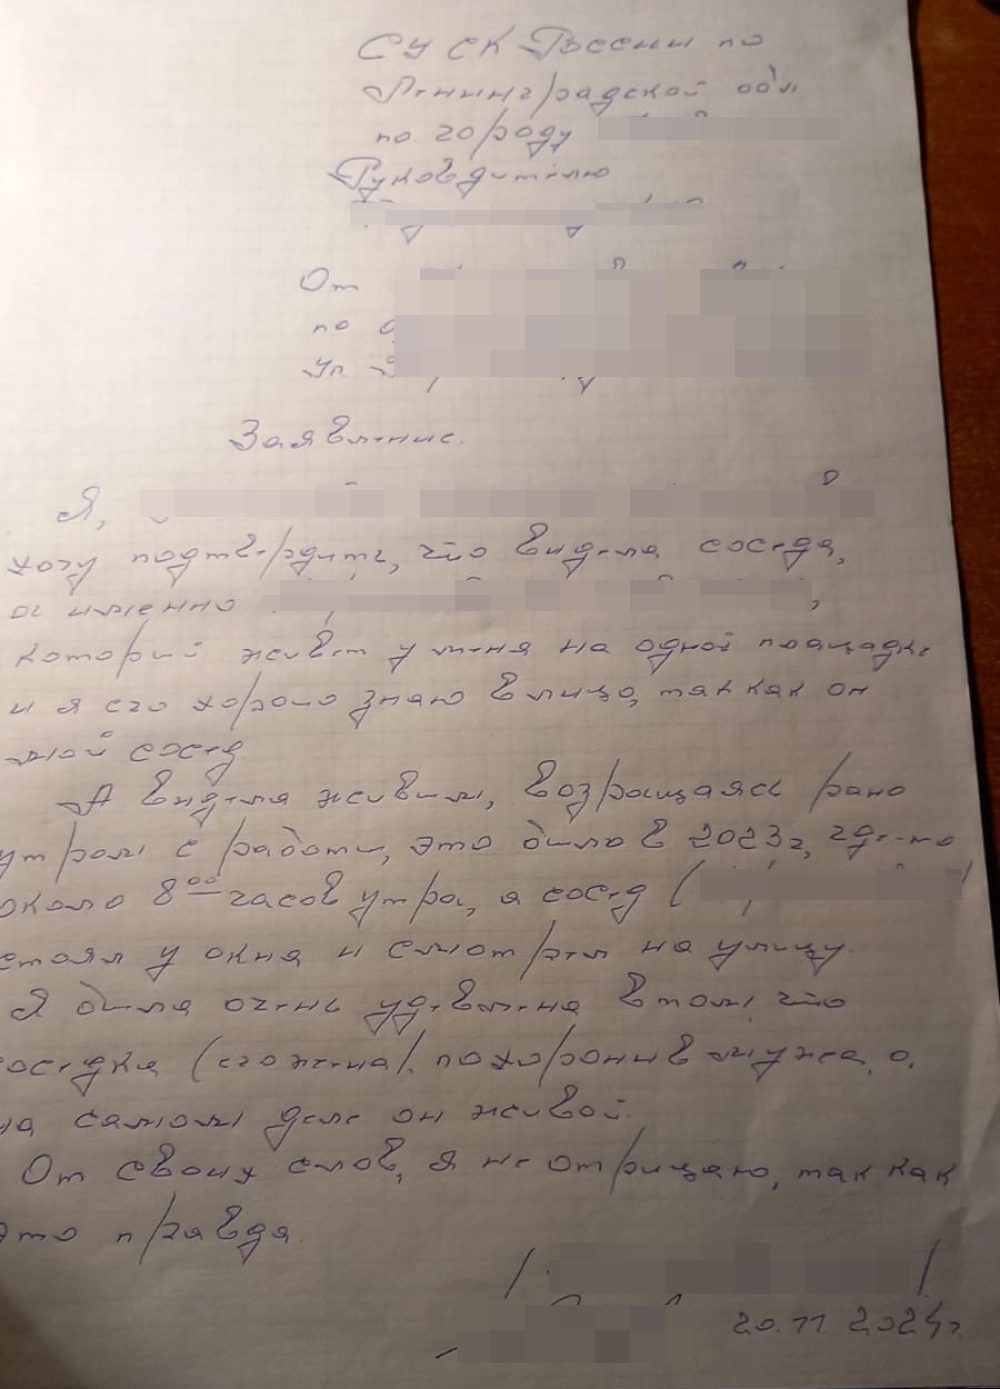 СУ СК России по
Ленинградской обл.
по городу
Руководителю
От
по
Заявление.
Я,
хочу подтвердить, что видела соседа,
а именно ,
который живёт у меня на одной площадке
и я его хорошо знаю в лицо, так как он
мой сосед
А видела живым, возращаясь рано
утром с работы, это было в 2023г, где-то
около 8⁰⁰ часов утра, а сосед (
стоял у окна и смотрел на улицу.
Я была очень удевлена в том, что
соседка (его жена), похоронив мужа, а
на самом деле он живой.
От своих слов, я не отрицаю, так как
это правда.
20.11 2024г.